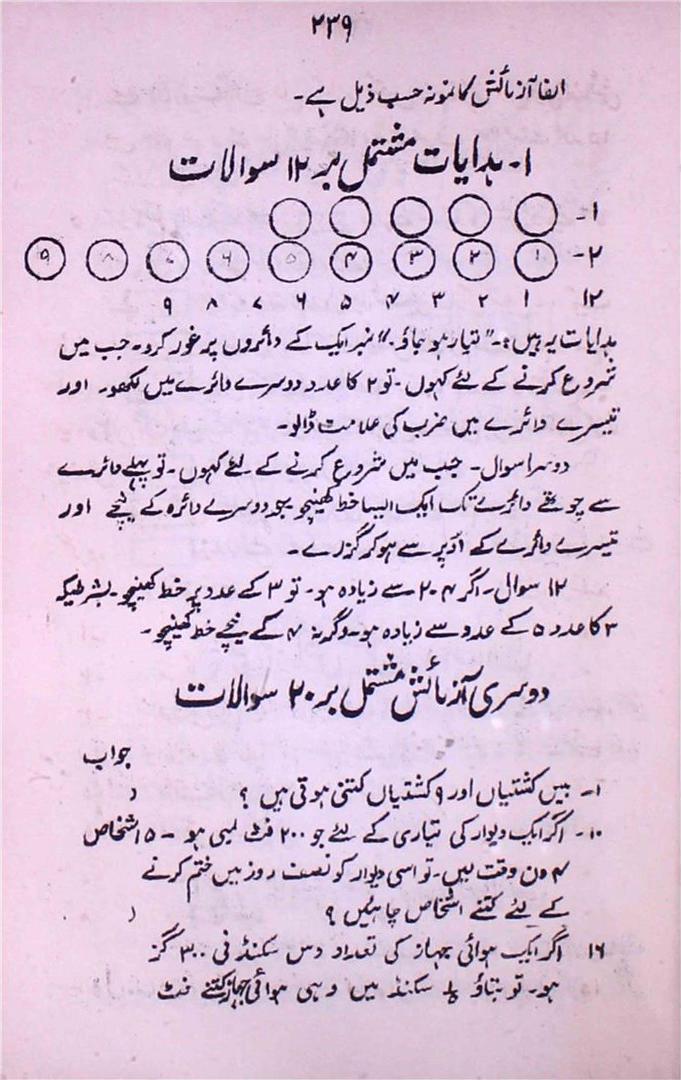 ۲۳۹
الفا آزمائش کا نمونہ حسب ذیل ہے۔
۱۔ ہدایات مشتمل بر ۱۲ سوالات
۱۔
۲۔ ۱ ۲ ۳ ۴ ۵ ۶ ۷ ۸ ۹
۱۲ ۱ ۲ ۳ ۴ ۵ ۶ ۷ ۸ ۹
ہدایات یہ ہیں:۔ "تیار ہو جاؤ۔" نمبر ایک کے دائروں پر غور کرو۔ جب میں
شروع کرنے کے لئے کہوں۔ تو ۲ کا عدد دوسرے دائرے میں لکھو۔ اور
تیسرے دائرے میں ضرب کی علامت ڈالو۔
دوسرا سوال۔ جب میں شروع کرنے کے لئے کہوں۔ تو پہلے دائرے
سے چوتھے دائرے تک ایک ایسا خط کھینچو۔ جو دوسرے دائرہ کے نیچے اور
تیسرے دائرے کے اوپر سے ہو کر گزرے۔
۱۲ سوال۔ اگر ۴، ۲ سے زیادہ ہو۔ تو ۳ کے عدد پر خط کھینچو۔ بشرطیکہ
۳ کا عدد ۵ کے عدد سے زیادہ ہو۔ وگرنہ ۴ کے نیچے خط کھینچو۔
دوسری آزمائش مشتمل بر ۲۰ سوالات
جواب
۱۔ بیس کشتیاں اور ۹ کشتیاں کتنی ہوتی ہیں ؟ (
۱۰۔ اگر ایک دیوار کی تیاری کے لئے جو ۲۰۰ فٹ لمبی ہو ۔ ۵ اشخاص
۴ دن وقت لیں۔ تو اسی دیوار کو نصف روز میں ختم کرنے
کے لئے کتنے اشخاص چاہئیں ؟ (
۱۶ اگر ایک ہوائی جہاز کی تعداد دس سکنڈ فی ۳۰۰ گز
ہو۔ تو بتاؤ سکنڈ میں وہی ہوائی جہاز کتنے فٹ